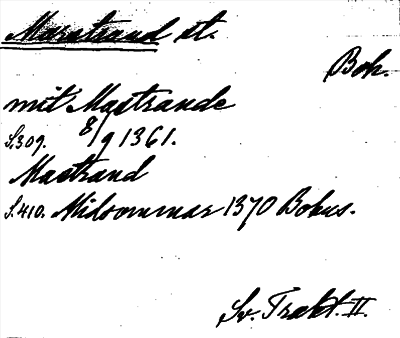 Marstrand st.
Boh.
mit Mastrande
S.309. 8/9 1361.
Mastrand
S.410. Midsommar 1370 Bohus.
Sv. Trakt. II.